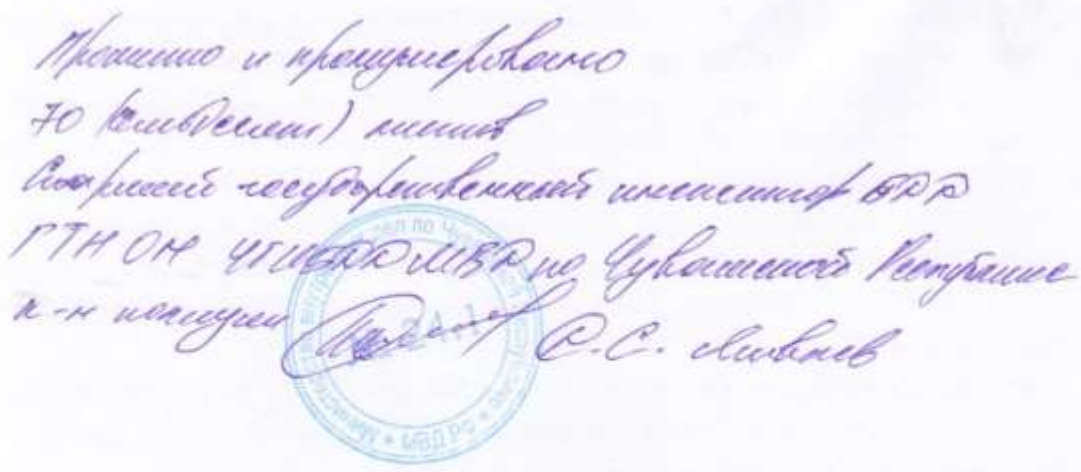 Прошито и пронумеровано
70 (семьдесят) листов
Старший государственный инспектор БДД
ГТН ОН УГИБДД МВД по Чувашской Республике
к-н полиции С.С.
24.1
МВД РФ